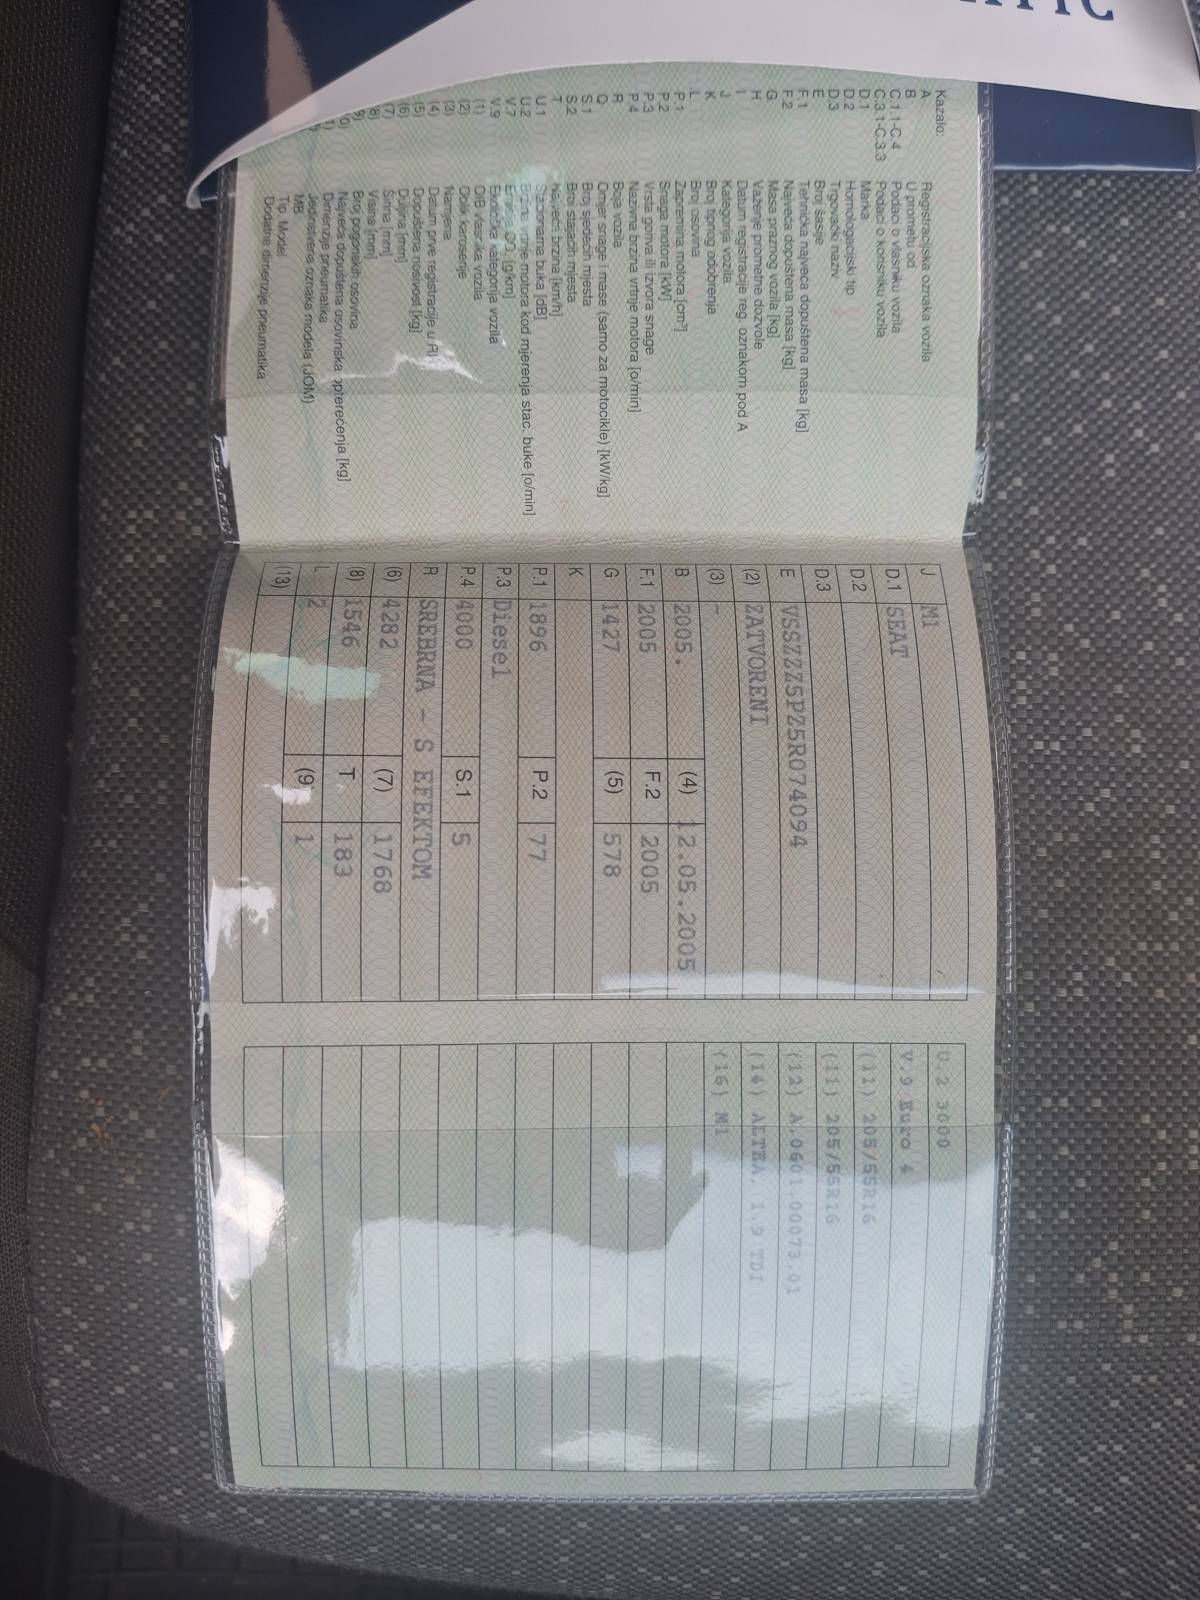 Kazalo:
A Registracijska oznaka vozila
B U prometu od
C.1.1-C.4 Podaci o vlasniku vozila
C.3.1-C.3.3 Podaci o korisniku vozila
D.1 Marka
D.2 Homologacijski tip
D.3 Trgovački naziv
E Broj šasije
F.1 Tehnička najveća dopuštena masa [kg]
F.2 Najveća dopuštena masa [kg]
G Masa praznog vozila [kg]
H Važenje prometne dozvole
I Datum registracije reg. oznakom pod A
J Kategorija vozila
K Broj tipnog odobrenja
L Broj osovina
P.1 Zapremina motora [cm³]
P.2 Snaga motora [kW]
P.3 Vrsta goriva ili izvora snage
P.4 Nazivna brzina vrtnje motora [o/min]
R Boja vozila
Q Omjer snage i mase (samo za motocikle) [kW/kg]
S.1 Broj sjedećih mjesta
S.2 Broj stajaćih mjesta
T Najveća brzina [km/h]
U.1 Stacionarna buka [dB]
U.2 Brzina vrtnje motora kod mjerenja stac. buke [o/min]
V.7 [g/km]
V.9 Ekološka kategorija vozila
(1) OIB vlasnika vozila
(2) Oblik karoserije
(3) Namjena
(4) Datum prve registracije u
(5) Dopuštena nosivost [kg]
(6) Duljina [mm]
(7) Širina [mm]
(8) Visina [mm]
Broj pogonskih osovina
Najveća dopuštena osovinska opterećenja [kg]
Dimenzije pneumatika
Jedinstvena oznaka modela (JOM)
MB
Tip, Model
Dodatne dimenzije pneumatika
J M1
D.1 SEAT
D.2
D.3
E VSSZZZ5PZ5R074094
(2) ZATVORENI
(3) -
B 2005. (4) 12.05.2005
F.1 2005 F.2 2005
G 1427 (5) 578
K
P.1 1896 P.2 77
P.3 Diesel
P.4 4000 S.1 5
R SREBRNA - S EFEKTOM
(6) 4282 (7) 1768
(8) 1546 T 183
L 2 (9) 1
(13)
U.2 3000
V.9 Euro 4
(11) 205/55R16
(11) 205/55R16
(12) A.0601.00073.01
(14) ALTEA, 1.9 TDI
(16) M1